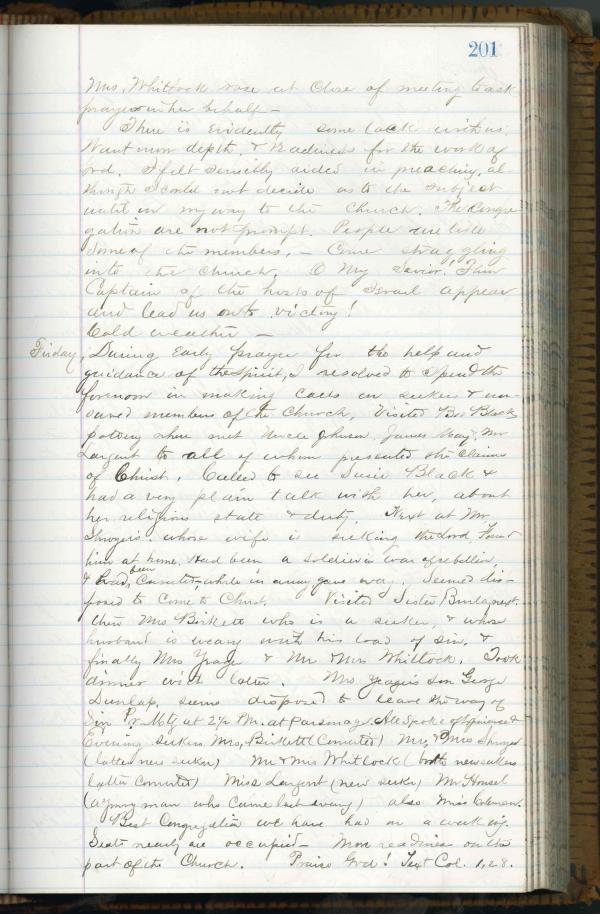 201
Mrs. Whitlock rose at Close of meeting to ask
prayers in her behalf –
There is Evidently some lack with us.
Want more depth, & readiness for the work of
God. I felt sensibly aided in preaching, al-
though I could not decide as to the subject
until on my way to the Church. The Congre-
gation are not prompt. People are late
Some of the members, – Come straggling
into the church. O My Savior! Thou
Captain of the hosts of Israel appear
and lead us on to victory!
Cold weather –
Friday, During Early prayer for the help and
guidance of the Spirit, I resolved to spend the
forenoon in making calls on seekers & un-
saved members of the Church. Visited Bro Blacks
pottery where met Uncle Johnson, James May, Mr
Largent to all of whom presented the claims
of Christ. Called to see Susie Black &
had a very plain talk with her, about
her religious state & duty. Next at Mr
whose wife is seeking the Lord. Found
him at home. Had been a soldier in war of rebellion
& had been Converted – while in army gave way. Seemed dis-
posed to Come to Christ. Visited Sister Dunlap next.
then Mrs Birkett who is a seeker, & whose
husband is weary with his load of sin, &
finally Mrs Yeager & Mr & Mrs Whitlock. Took
dinner with latter. Mrs Yeagers son George
Dunlap, seems disposed to leave the way of
Sin. Pr. Mtg at 2 1/2 P.M. at Parsonage. All spoke &
Evening seekers Mrs. Birkett (Converted) Mr. & Mrs
(latter new seeker) Mr & Mrs Whitlock (both new seekers
latter converted) Miss Largent (new seeker) Mr Housel
(a young man who Came last evening) also Miss
Best Congregation we have had on a week evg.
Seats nearly all occupied – More readiness on the
part of the Church. Praise God! Text Col. 1,28.